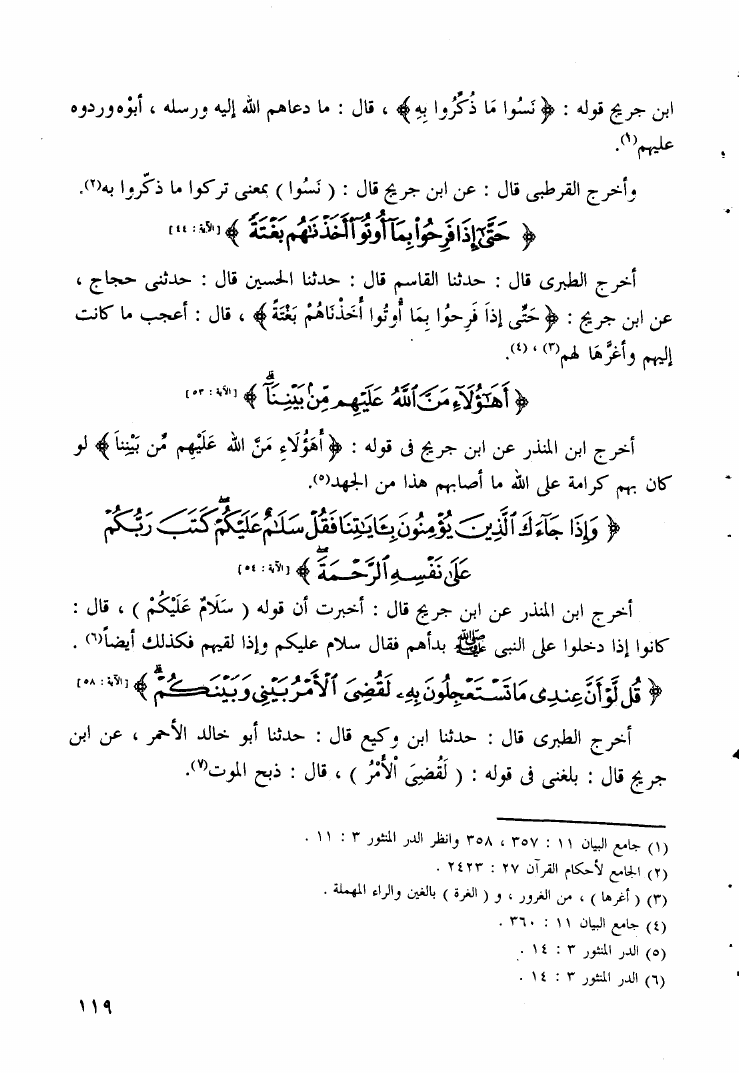 ابن جريج قوله : ﴿ نَسُوا مَا ذُكِّرُوا بِهِ ﴾ ، قال : ما دعاهم الله إليه ورسله ، أبوْه وردوه
عليهم(١).
وأخرج القرطبى قال : عن ابن جريج قال : ( نَسُوا ) بمعنى تركوا ما ذكّروا به(٢).
﴿ حَتَّىٰٓ إِذَا فَرِحُوا۟ بِمَآ أُوتُوٓا۟ أَخَذْنَٰهُم بَغْتَةً ﴾ [الآية : ٤٤]
أخرج الطبرى قال : حدثنا القاسم قال : حدثنا الحسين قال : حدثنى حجاج ،
عن ابن جريج : ﴿ حَتَّى إِذاَ فَرِحوُا بِمَا أُوتُوا أَخَذْنَاهُمْ بَغْتَةً ﴾ ، قال : أعجب ما كانت
إليهم وأغرَّهَا لهم(٣) ، (٤).
﴿ أَهَٰٓؤُلَآءِ مَنَّ ٱللَّهُ عَلَيْهِم مِّنۢ بَيْنِنَآ ۗ ﴾ [الآية : ٥٣]
أخرج ابن المنذر عن ابن جريج فى قوله : ﴿ أَهَؤُلَاءِ مَنَّ الله عَلَيْهِم مِّن بَيْنِناَ ﴾ لو
كان بهم كرامة على الله ما أصابهم هذا من الجهد(٥).
﴿ وَإِذَا جَآءَكَ ٱلَّذِينَ يُؤْمِنُونَ بِـَٔايَٰتِنَا فَقُلْ سَلَٰمٌ عَلَيْكُمْ ۖ كَتَبَ رَبُّكُمْ
عَلَىٰ نَفْسِهِ ٱلرَّحْمَةَ ۖ ﴾ [الآية : ٥٤]
أخرج ابن المنذر عن ابن جريج قال : أخبرت أن قوله ( سَلَامٌ عَلَيْكُمْ ) ، قال :
كانوا إذا دخلوا على النبى ﷺ بدأهم فقال سلام عليكم وإذا لقيهم فكذلك أيضاً(٦) .
﴿ قُل لَّوْ أَنَّ عِندِى مَا تَسْتَعْجِلُونَ بِهِۦ لَقُضِىَ ٱلْأَمْرُ بَيْنِى وَبَيْنَكُمْ ۗ ﴾ [الآية : ٥٨]
أخرج الطبرى قال : حدثنا ابن وكيع قال : حدثنا أبو خالد الأحمر ، عن ابن
جريج قال : بلغنى فى قوله : ( لَقُضِىَ اْلأَمْرُ ) ، قال : ذبح الموت(٧).
(١) جامع البيان ١١ : ٣٥٧ ، ٣٥٨ وانظر الدر المنثور ٣ : ١١ .
(٢) الجامع لأحكام القرآن ٢٧ : ٢٤٢٣ .
(٣) ( أغرها ) ، من الغرور ، و ( الغرة ) بالغين والراء المهملة .
(٤) جامع البيان ١١ : ٣٦٠ .
(٥) الدر المنثور ٣ : ١٤ .
(٦) الدر المنثور ٣ : ١٤ .
١١٩